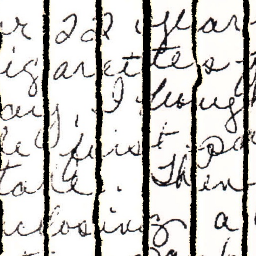 r 22 year
igarettes
ay. I boug
he first pa
take. Then
nclosing a